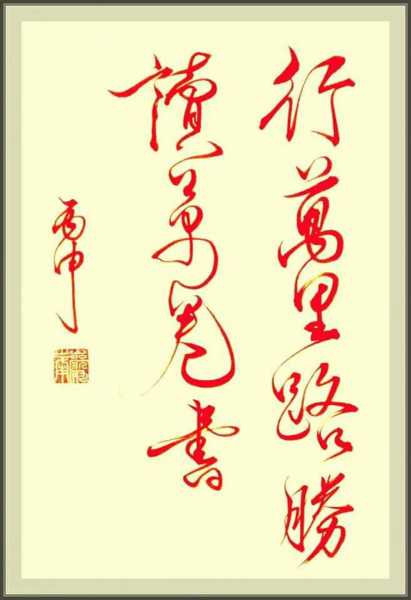 行萬里路勝
讀萬卷書
丙申